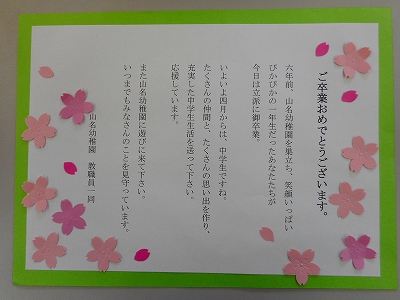 ご卒業おめでとうございます。
六年前、山名幼稚園を巣立ち、笑顔いっぱい
ぴかぴかの一年生だったあなたたちが
今日は立派に御卒業。
いよいよ四月からは、中学生ですね。
たくさんの仲間と、たくさんの思い出を作り、
充実した中学生生活を送って下さい。
応援しています。
また山名幼稚園に遊びに来て下さい。
いつまでもみなさんのことを見守っています。
山名幼稚園　教職員一同